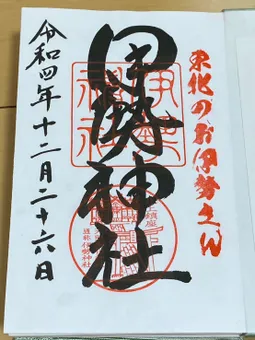 東北のお伊勢さん
伊勢神社
令和四年十二月二十六日